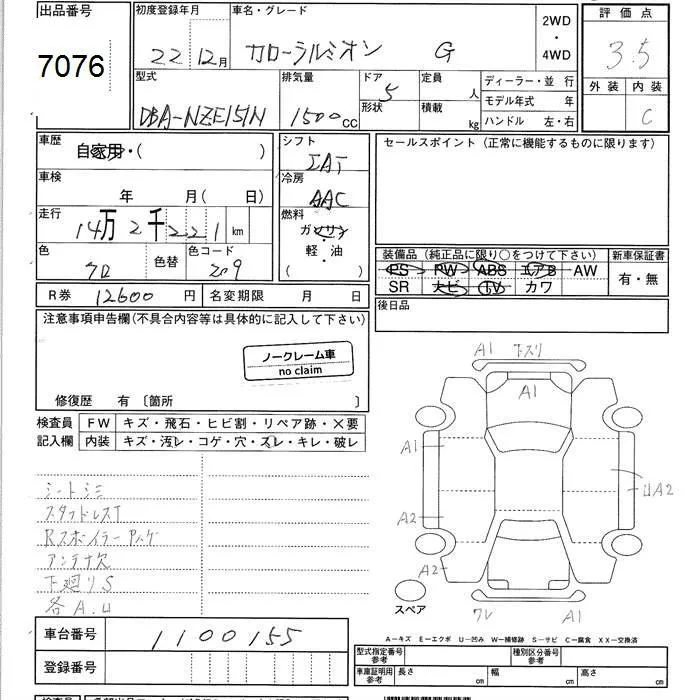 出品番号
7076
初度登録年月
22 12月
車名・グレード
カローラルミオン G
2WD
・
4WD
評価点
3.5
外装 内装
C
型式
DBA-NZE151N
排気量
1500cc
ドア 5
形状
定員 人
積載 kg
ディーラー・並 行
モデル年式 年
ハンドル 左・右
車歴
自家用・( )
車検
年 月( 日)
走行
14万2千221km
色
クロ
色替
色コード
209
シフト
IAT
冷房
AAC
燃料
ガソリン
・
軽・油
( )
セールスポイント (正常に機能するものに限ります)
装備品 (純正品に限り○をつけて下さい)
PS PW ABS エアB AW
SR ナビ TV カワ
新車保証書
有・無
R券 12600円
名変期限 月 日
後日品
注意事項申告欄(不具合内容等は具体的に記入して下さい)
ノークレーム車
no claim
修復歴 有 〔箇所 〕
検査員
記入欄
FW キズ・飛石・ヒビ割・リペア跡・×要
内装 キズ・汚レ・コゲ・穴・スレ・キレ・破レ
シートシミ
スタッドレスT
アンテナ欠
下廻りS
各A.U
A1 下スリ
A1
A1
A2
A2
UA2
スペア
ワレ A1
A-キズ E-エクボ U-凹み W-補修跡 S-サビ C-腐食 XX-交換済
車台番号
1100155
登録番号
型式指定番号
参考
種別区分番号
参考
車庫証明用
参考
長さ cm
幅 cm
高さ cm